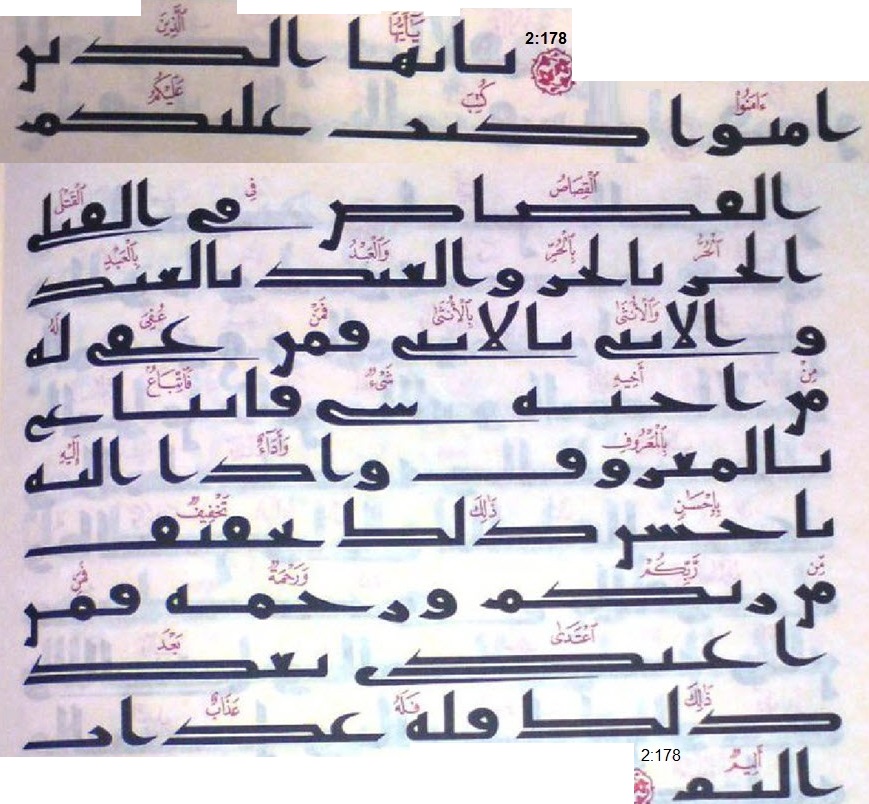 يَٰٓأَيُّهَا ٱلَّذِينَ
2:178 يايها الذين
ءَامَنُوا۟ كُتِبَ عَلَيْكُمُ
امنوا كتب عليكم
ٱلْقِصَاصُ فِى ٱلْقَتْلَى
القصاص فى القتلى
ٱلْحُرُّ بِٱلْحُرِّ وَٱلْعَبْدُ بِٱلْعَبْدِ
الحر بالحر والعبد بالعبد
وَٱلْأُنثَىٰ بِٱلْأُنثَىٰ فَمَنْ عُفِىَ لَهُۥ
والانثى بالانثى فمن عفى له
مِنْ أَخِيهِ شَىْءٌ فَٱتِّبَاعٌۢ
من اخيه شى فاتباع
بِٱلْمَعْرُوفِ وَأَدَآءٌ إِلَيْهِ
بالمعروف وادا اليه
بِإِحْسَٰنٍ ذَٰلِكَ تَخْفِيفٌ
باحسن ذلك تخفيف
مِّن رَّبِّكُمْ وَرَحْمَةٌ فَمَنِ
من ربكم ورحمه فمن
ٱعْتَدَىٰ بَعْدَ
اعتدى بعد
ذَٰلِكَ فَلَهُۥ عَذَابٌ
ذلك فله عذاب
أَلِيمٌ
اليم 2:178